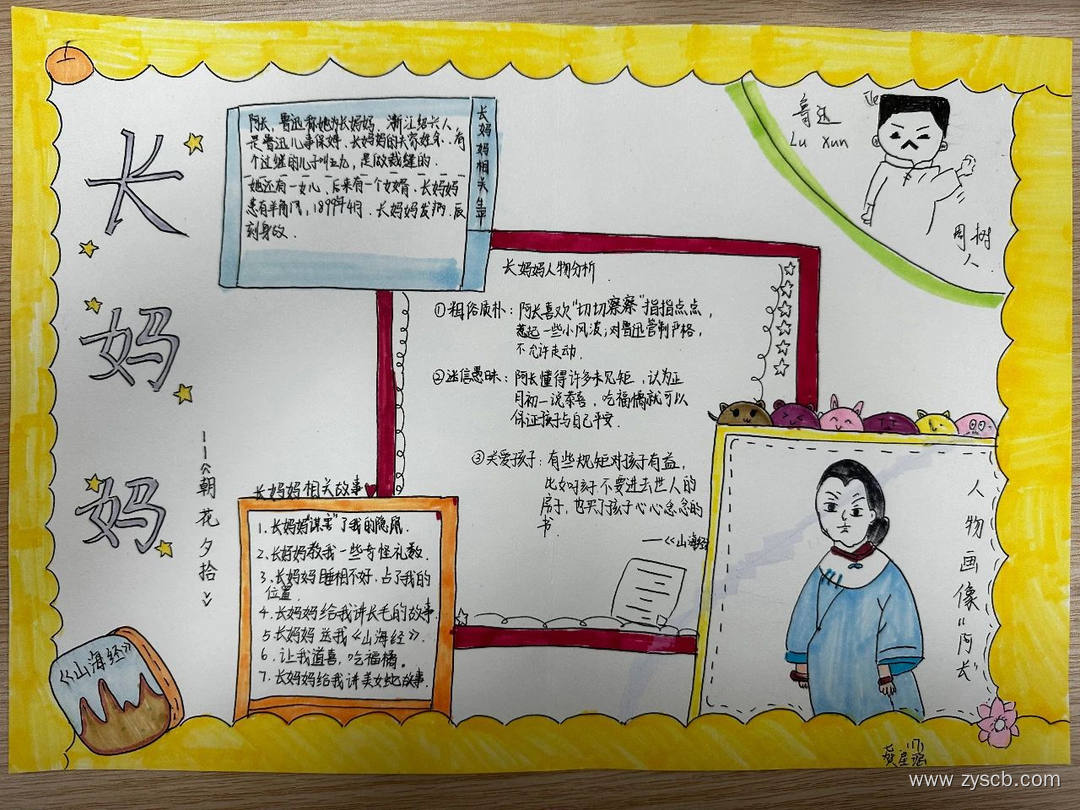 长妈妈
——《朝花夕拾》
长妈妈相关生平
阿长,鲁迅称她为长妈妈,浙江绍兴人,
是鲁迅儿事保姆.长妈妈的夫家姓余.有
个过继的儿子叫五九,是做裁缝的.
她还有一女儿、后来有一个女婿.长妈妈
患有羊角风,1899年4月.长妈妈发病.辰
刻身故.
鲁迅
Lu Xun
周树人
长妈妈人物分析
①粗俗质朴:阿长喜欢“切切察察”指指点点,
惹起一些小风波;对鲁迅管制严格,
不允许走动.
②迷信愚昧:阿长懂得许多未见矩,认为正
月初一说恭喜,吃福橘就可以
保证孩子与自己平安.
③关爱孩子:有些规矩对孩子有益,
比如孩子不要进去世人的
房子,也买了孩子心心念念的
书.
——《山海经
长妈妈相关故事
1.长妈妈“谋害”了我的隐鼠.
2.长妈妈教我一些奇怪礼数.
3.长妈妈睡相不好,占了我的
位置.
4.长妈妈给我讲长毛的故事.
5.长妈妈送我《山海经》.
6.让我道喜,吃福橘。
7.长妈妈给我讲美女蛇故事.
人物画像“阿长”
《山海经》
www.zyscb.com